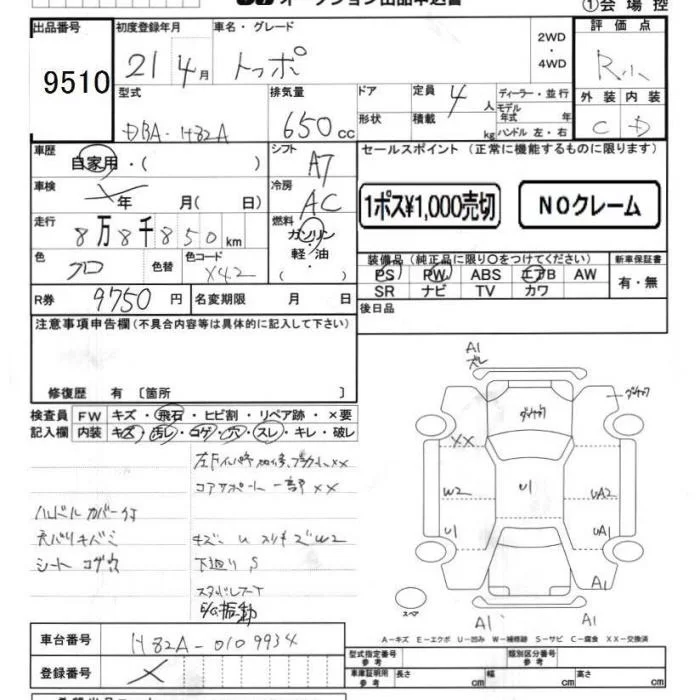 オークション出品申込書
①会場控
出品番号 初度登録年月 車名・グレード 評価点
9510 21年4月 トッポ 2WD・4WD R小
型式 排気量 ドア 定員 ディーラー・並行 外装 内装
DBA-H82A 650cc 4人 モデル年式 年 C D
形状 積載 kg ハンドル 左・右
車歴 シフト セールスポイント(正常に機能するものに限ります)
自家用・( ) A7
車検 冷房 1ポス¥1,000売切 NOクレーム
年 月( 日) AC
走行 燃料
8万8千850km ガソリン・軽油・( )
色 色替 色コード 装備品(純正品に限り○をつけてください) 新車保証書
クロ X42 PS PW ABS エアB AW 有・無
SR ナビ TV カワ
R券 9750円 名変期限 月 日 後日品
注意事項申告欄(不具合内容等は具体的に記入して下さい)
A1
修復歴 有 [箇所 ]
検査員 FW キズ・飛石・ヒビ割・リペア跡・×要
記入欄 内装 キズ・汚レ・コゲ・穴・スレ・キレ・破レ
XX
コアサポート一部XX
W2 U1 UA2
ハンドルカバー付
U1 UA1
シートコゲ穴 下廻りS
A1
スペア
A1 A1
A-キズ E-エクボ U-凹み W-補修跡 S-サビ C-腐食 XX-交換済
車台番号 H82A-0109934
型式指定番号 参考 類別区分番号 参考
登録番号 車庫証明用 参考 長さ cm 幅 cm 高さ cm